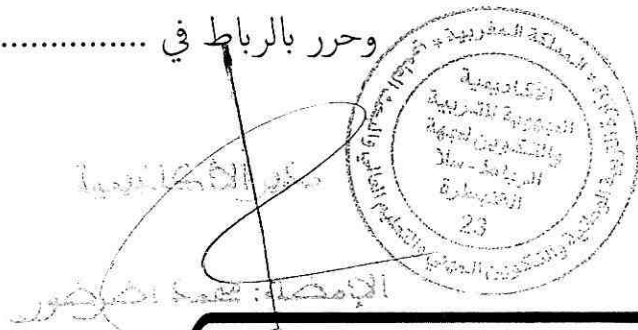 وحرر بالرباط في ..................
المملكة المغربية
الأكاديمية
الجهوية للتربية
والتكوين لجهة
الرباط - سلا
القنيطرة
23
مدير الأكاديمية
الإمضاء: محمد